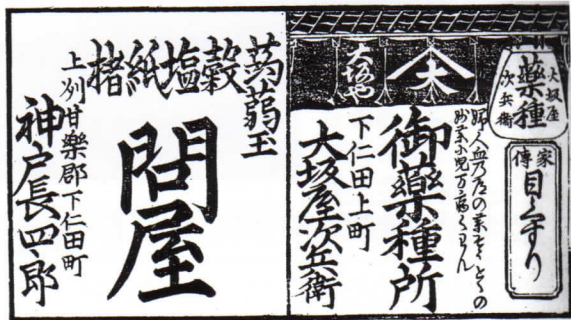 大坂屋
薬種
次兵衛
家傳
目くすり
大坂や
大
御薬種所
下仁田上町
大坂屋次兵衛
蒟蒻玉
穀
塩
紙
楮
問屋
上州甘楽郡下仁田町
神戸長四郎